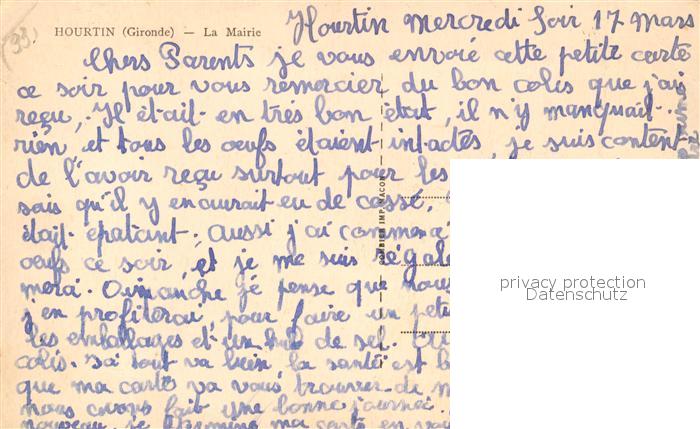 HOURTIN (Gironde) — La Mairie
Hourtin Mercredi Soir 17 Mars
Chers Parents je vous envoie cette petite carte
ce soir pour vous remercier du bon colis que j'ai
reçu, Il était en très bon état, il n'y manquait
rien et tous les oeufs étaient intactes, je suis content
de l'avoir reçu surtout pour les
sais qu'il y en aurait eu de cassé.
était épatant; Aussi j'ai commencé
oeufs ce soir, et je me suis régalé
merci. Dimanche je pense que nous
j'en profiterai, pour faire un peti
les emballages et un de sel.
colis. Ici tout va bien, la santé est b
que ma carte va vous trouver de m
nous avons fait une bonne journée.
nouveau, je termine ma carte en
COMBIER IMP. MACON
privacy protection
Datenschutz